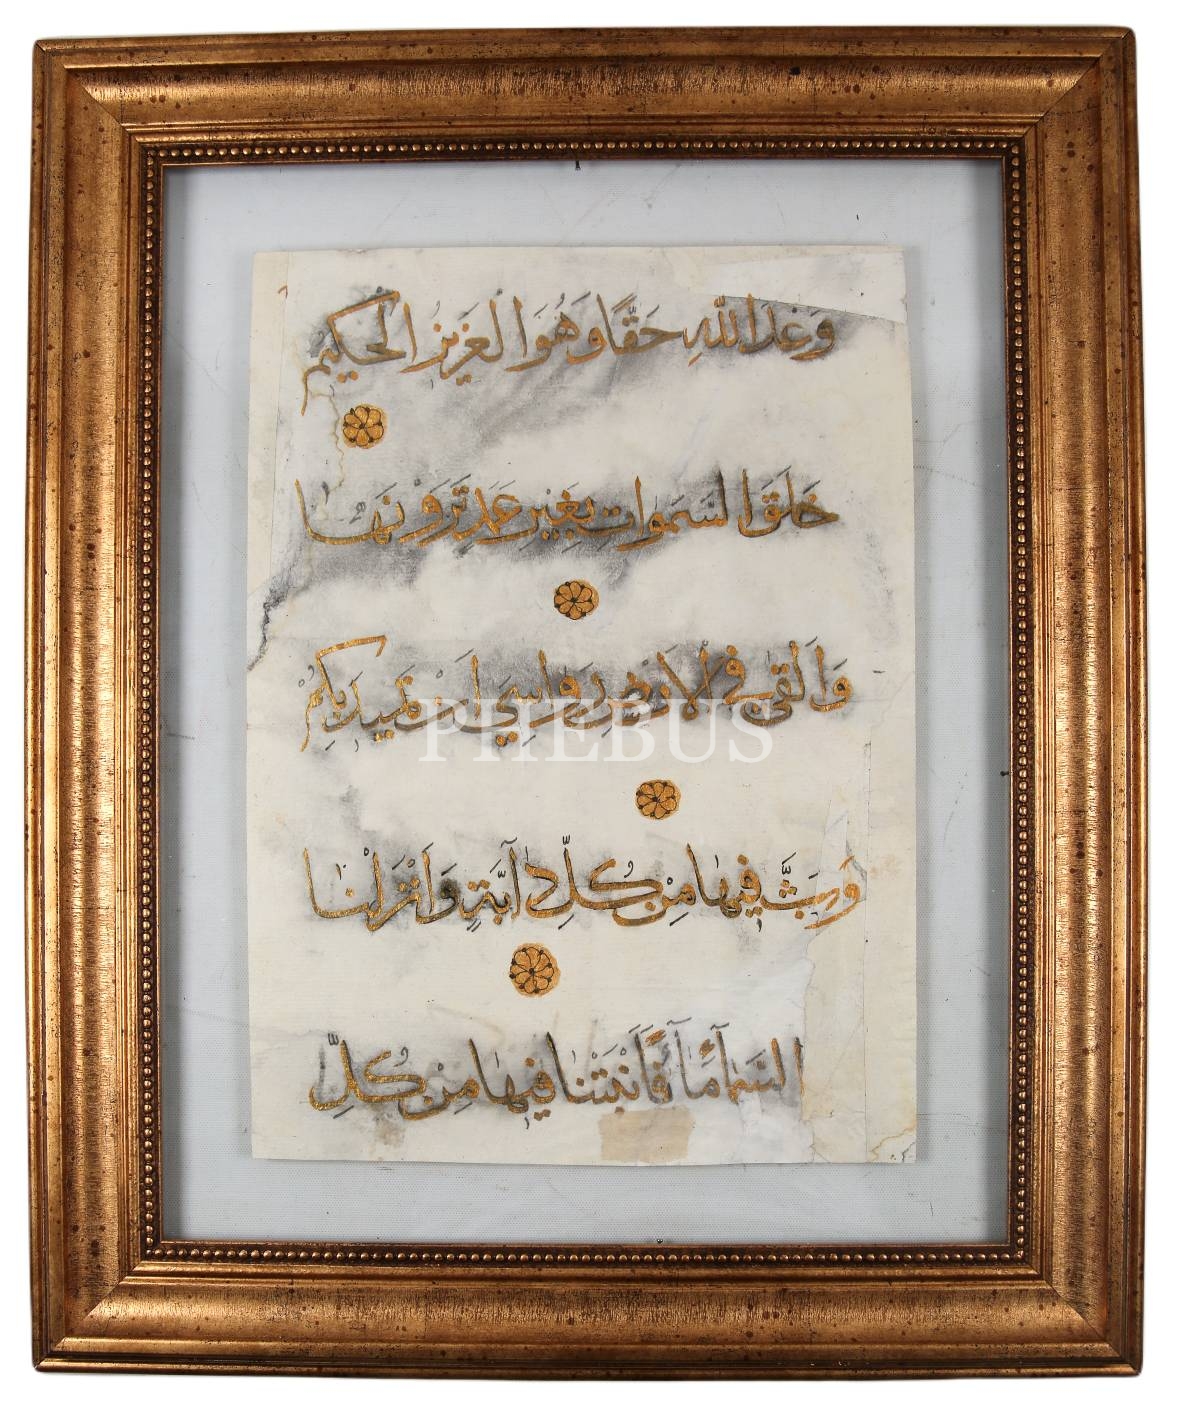 وَعْدَ اللّٰهِ حَقًّا وَهُوَ الْعَزِيزُ الْحَكِيمُ
خَلَقَ السَّمَوَاتِ بِغَيْرِ عَمَدٍ تَرَوْنَهَا
وَاَلْقٰى فِي الْاَرْضِ رَوَاسِيَ اَنْ تَمِيدَ بِكُمْ
وَبَثَّ فِيهَا مِنْ كُلِّ دَآبَّةٍ وَاَنْزَلْنَا
السَّمَآءِ مَآءً فَاَنْبَتْنَا فِيهَا مِنْ كُلِّ
PHEBUS